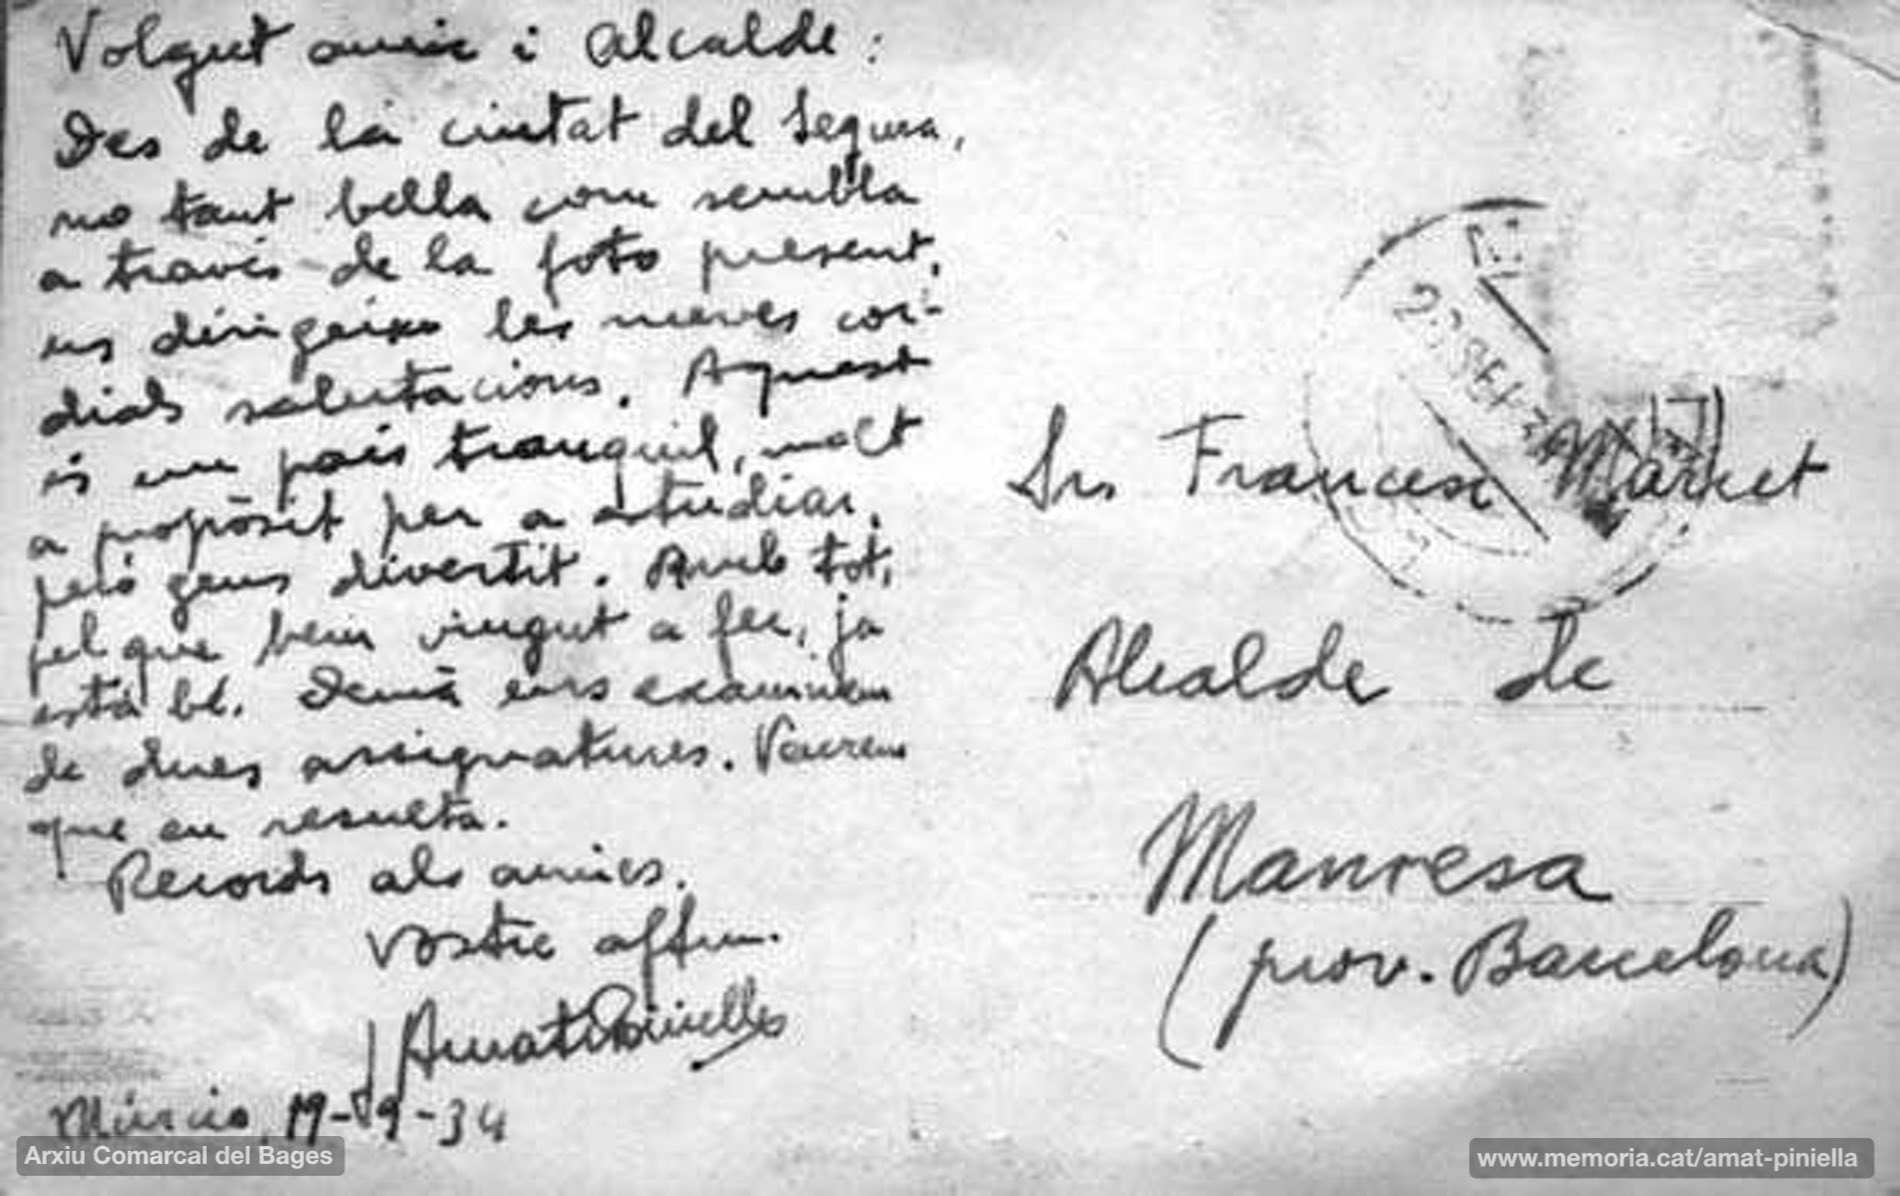 Volgut amic i Alcalde:
Des de la ciutat del Segura,
no tant bella com sembla
a través de la foto present,
us dirigeixo les meves cor-
dials salutacions. Aquest
és un país tranquil, molt
a propòsit per a estudiar,
però gens divertit. Amb tot,
pel que hem vingut a fer, ja
està bé. Demà ens examinem
de dues assignatures. Veurem
que en resulta.
Records als amics.
Vostre affm.
J Amat Piniella
Múrcia, 19-9-34
Sr. Francesc Marcet
Alcalde de
Manresa
(prov. Barcelona)
Arxiu Comarcal del Bages
www.memoria.cat/amat-piniella